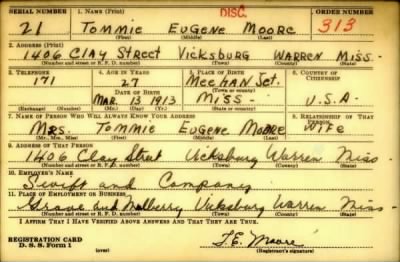 SERIAL NUMBER 1. NAME (Print) DISC. ORDER NUMBER
21 TOMMIE EUGENE MOORE 313
(First) (Middle) (Last)
2. ADDRESS (Print)
1406 CLAY STREET VICKSBURG WARREN MISS.
(Number and street or R. F. D. number) (Town) (County) (State)
3. TELEPHONE 4. AGE IN YEARS 5. PLACE OF BIRTH 6. COUNTRY OF CITIZENSHIP
171 27 MEEHAN JCT.
(Town or county)
DATE OF BIRTH
MAR. 13 1913 MISS U.S.A
(Exchange) (Number) (Mo.) (Day) (Yr.) (State or country)
7. NAME OF PERSON WHO WILL ALWAYS KNOW YOUR ADDRESS 8. RELATIONSHIP OF THAT PERSON
MRS. TOMMIE EUGENE MOORE WIFE
(Mr., Mrs., Miss) (First) (Middle) (Last)
9. ADDRESS OF THAT PERSON
1406 Clay Street Vicksburg Warren Miss
(Number and street or R. F. D. number) (Town) (County) (State)
10. EMPLOYER'S NAME
Swift and Company
11. PLACE OF EMPLOYMENT OR BUSINESS
Grove and Mulberry Vicksburg Warren Miss
(Number and street or R. F. D. number) (Town) (County) (State)
I AFFIRM THAT I HAVE VERIFIED ABOVE ANSWERS AND THAT THEY ARE TRUE.
REGISTRATION CARD
D. S. S. Form 1 (over) T.E. Moore
(Registrant's signature)